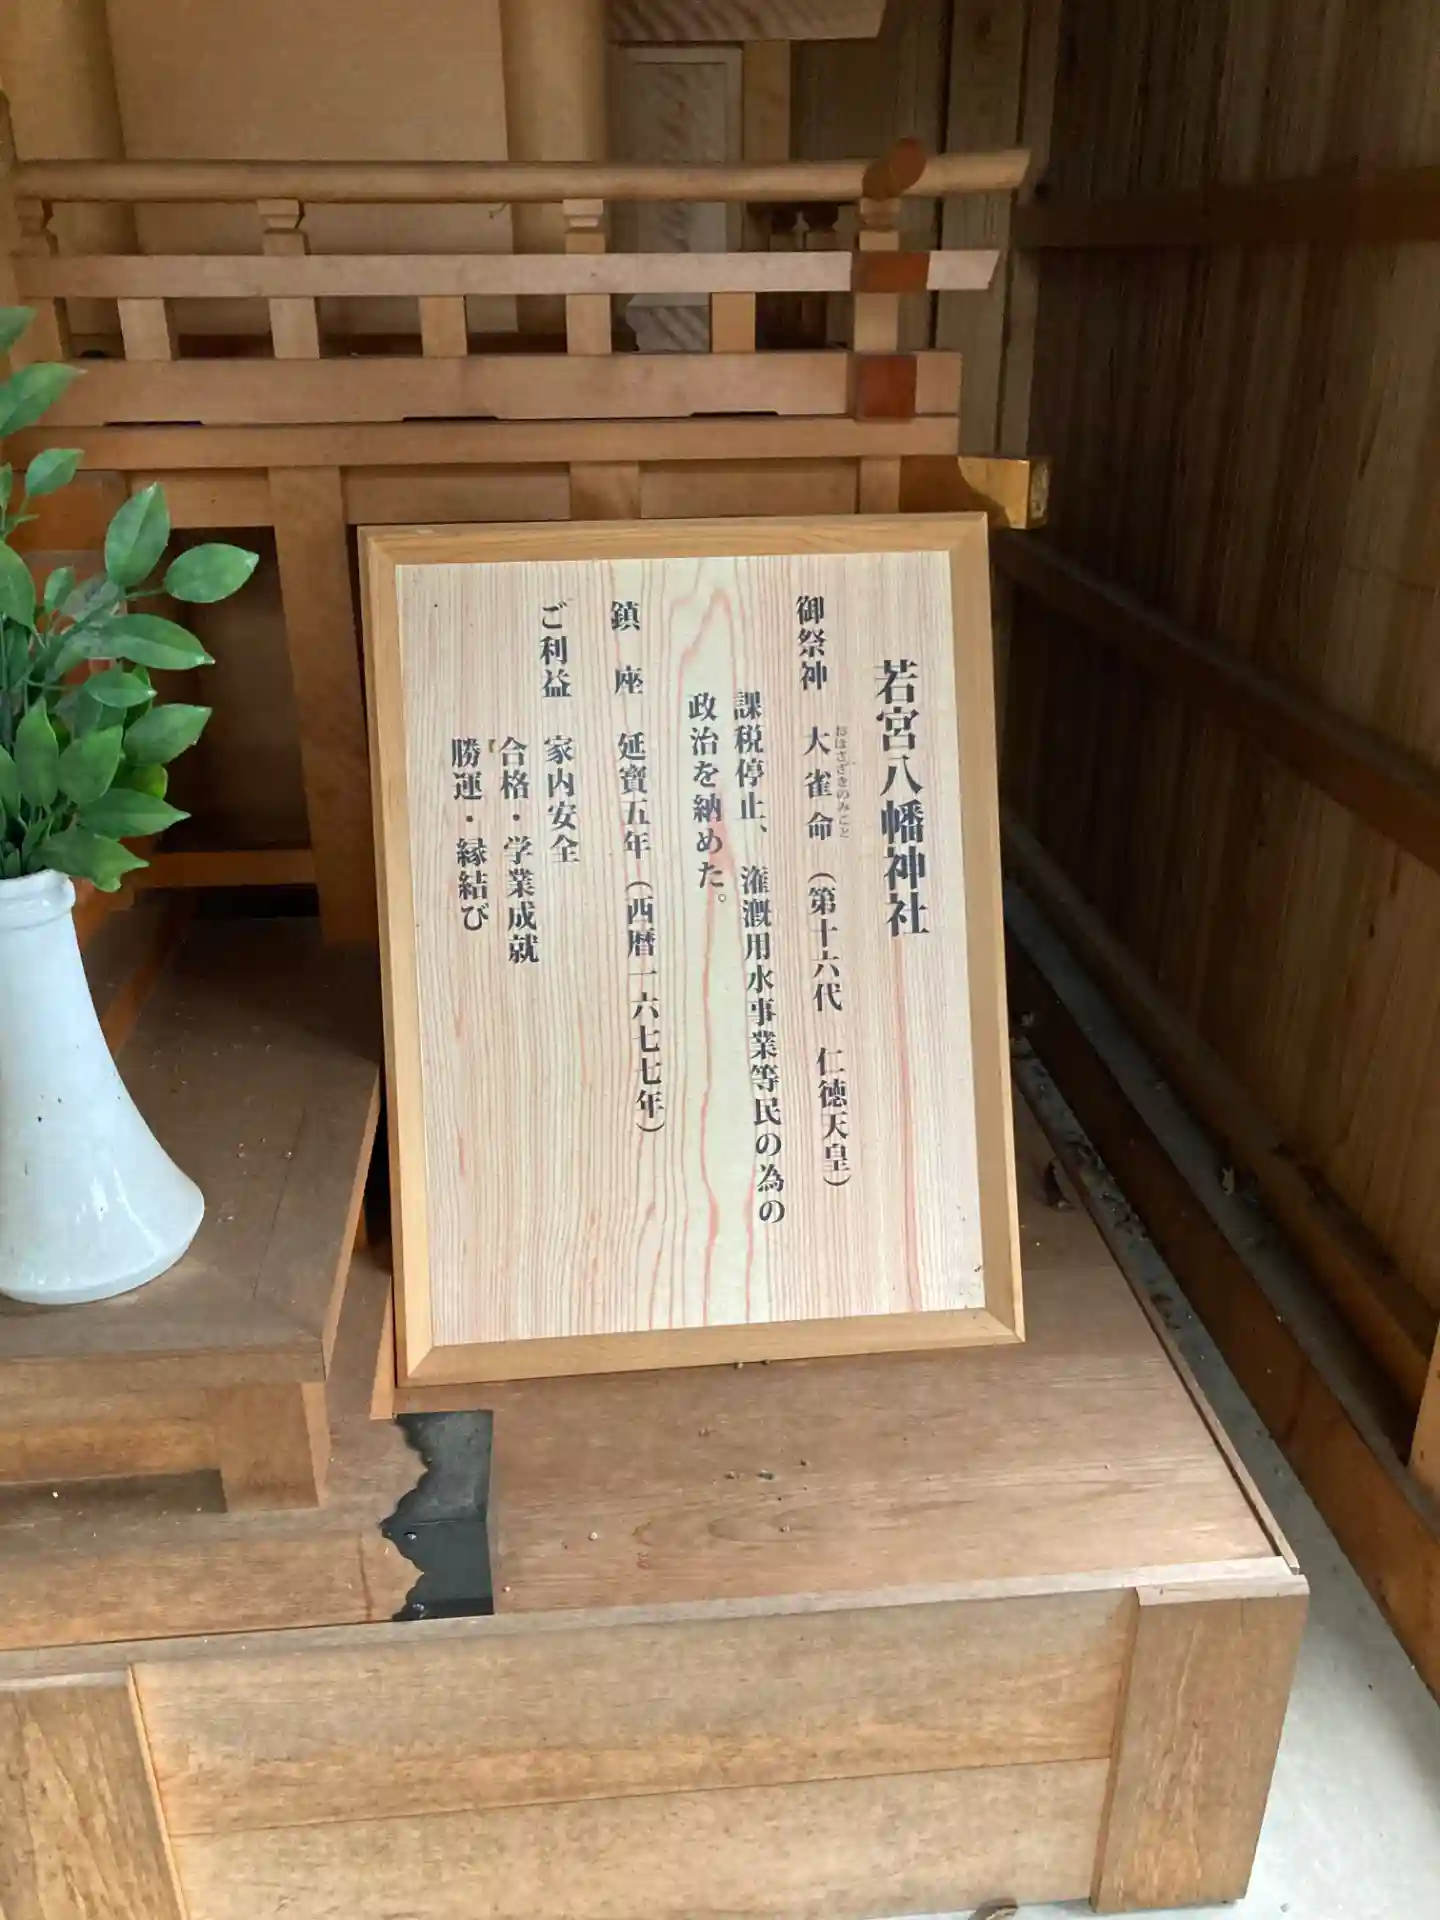 若宮八幡神社
御祭神 大雀命(第十六代 仁徳天皇)
おほさざきのみこと
課税停止、灌漑用水事業等民の為の
政治を納めた。
鎮 座 延寶五年(西暦一六七七年)
ご利益 家内安全
合格・学業成就
勝運・縁結び